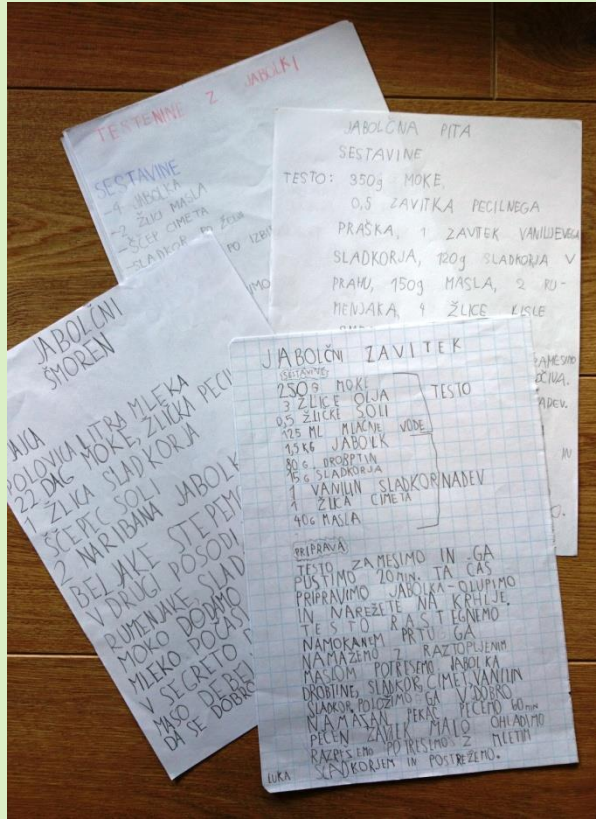 TESTENINE Z JABOLKI
SESTAVINE
-4 JABOLKA
-2 ŽLICI MASLA
-ŠČEP CIMETA
-SLADKOR PO ŽELJI
PO IZBI
JABOLČNA PITA
SESTAVINE
TESTO: 350g MOKE,
0,5 ZAVITKA PECILNEGA
PRAŠKA, 1 ZAVITEK VANILIJEVEGA
SLADKORJA, 120g SLADKORJA V
PRAHU, 150g MASLA, 2 RU-
MENJAKA, 4 ŽLICE KISLE
ZAMESIMO
OČIVA.
ADEV.
IN
JABOLČNI
ŠMOREN
JAJCA
POLOVICA LITRA MLEKA
22 DAG MOKE, ŽLIČKA PECI
1 ŽLICA SLADKORJA
ŠČEPEC SOLI
2 NARIBANA JABOLK
BELJAKE STEPEMO
V DRUGI POSODI
RUMENJAKE SLAD
MOKO DODAMO
MLEKO POČAS
V SEGRETO
MASO DEBEL
DA SE DOBRO
JABOLČNI ZAVITEK
SESTAVINE
250g MOKE
3 ŽLICE OLJA TESTO
0,5 ŽLIČKE SOLI
125 ML MLAČNE VODE
1,5 KG JABOLK
80g DROBPTIN
15g SLADKORJA
1 VANILIN SLADKOR NADEV
1 ŽLICA CIMETA
40g MASLA
PRIPRAVA
TESTO ZAMESIMO IN GA
PUSTIMO 20 MIN. TA ČAS
PRIPRAVIMO JABOLKA-OLUPIMO
IN NAREŽETE NA KRHLJE.
TESTO RASTEGNEMO
NAMOKANEM PRTUG GA
NAMAŽEMO Z RAZTOPLJENIM
MASLOM POTRESEMO JABOLKA
DROBTINE, SLADKOR, CIMET VANILIN
SLADKOR. POLOŽIMO GA V DOBRO
NAMASAN PEKAČ PEČEMO 60 MIN
PEČEN ZAVIEK MALO OHLADIMO
RAZREŽEMO POTRESEMO Z MLETIM
SLADKORJEM IN POSTREŽEMO.
LUKA